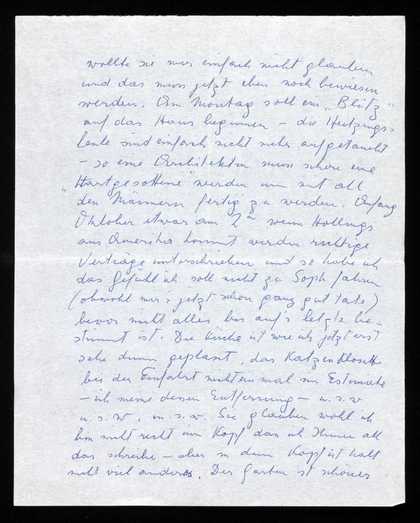 wollte sie mir einfach nicht glauben
und das muss jetzt eben noch bewiesen
werden. Am Montag soll ein „Blitz"
auf das Haus beginnen – die Heizungs-
leute sind einfach nicht mehr aufgetaucht
– so eine Architektin muss schon eine
„Hartgesottene" werden um mit all
den Männern fertig zu werden. Anfang
Oktober etwa am 2ten wenn Hollings
aus Amerika kommt werden richtige
Verträge unterschrieben und so habe ich
das Gefühl ich soll nicht zu Soph fahren
(obwohl mir's jetzt schon ganz gut täte)
bevor nicht alles bis auf's letzte be-
stimmt ist. Die Küche ist wie ich jetzt erst
sehe dumm geplant, das Katzenklosett
bei der Einfahrt nicht einmal im
– ich meine dessen Entfernung – u.s.w.
u.s.w., u.s.w. Sie glauben wohl ich
bin nicht recht im Kopf dass ich Ihnen all
das schreibe – aber in dem Kopf ist halt
nicht viel anderes. Der Garten ist schönes